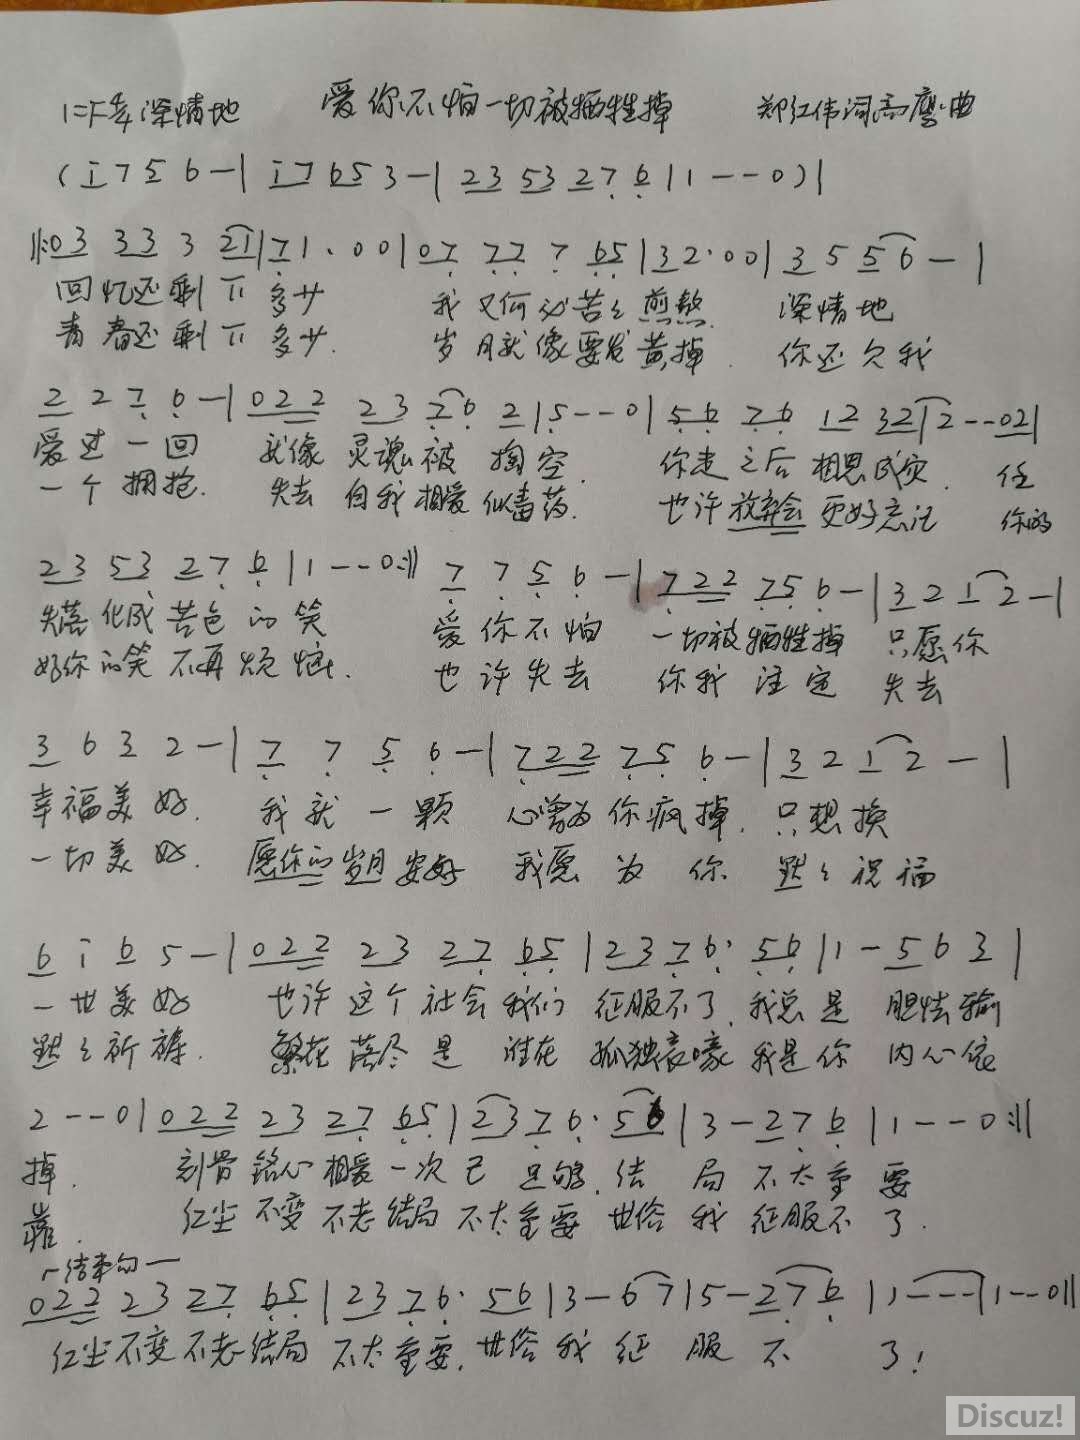 1=F 4/4 深情地 爱你不怕一切被牺牲掉 郑红伟词高鹰曲
(i 7 5 6 -| i7 65 3 -| 23 53 27 6 |1 - - 0)|
||:03 33 3 21|71. 00|07 77 7 65|32. 00|3 5 5 6 - |
回忆还剩下多少 我又何必苦苦煎熬 深情地
青春还剩下多少. 岁月就像要发黄掉. 你还欠我
2 2 7 6 -|022 23 76 2|5 - - 0|56 76 12 32|2 - - 02|
爱过一回 就像灵魂被掏空. 你走之后相思成灾. 任
一个拥抱. 失去自我相爱似毒药. 也许放弃会更好忘记 你的
23 53 27 6|1 - - 0:|| 7 7 5 6 -|722 75 6 -|3 2 1 2 -|
失落化成苦色的笑 爱你不怕 一切被牺牲掉 只愿你
好你的笑不再烦恼. 也许失去 你我注定 失去
3 6 3 2 -|7 7 5 6 -|722 75 6 -|3 2 1 2 - |
幸福美好. 我就一颗 心曾为你疯掉. 只想换
一切美好. 愿你的岁月安好 我愿为你 默々祝福
6 i 6 5 -|022 23 27 65|23 76. 56|1 - 5 6 3|
一世美好 也许这个社会我们 征服不了.我总是 胆怯输
默々祈祷. 繁花落尽是谁在 孤独哀嚎 我是你 内心依
2 - - 0|022 23 27 65|23 76. 56|3 - 27 6|1 - - 0:||
掉. 刻骨铭心相爱一次已 足够.结 局不太重要
靠. 红尘不变不老结局 不太重要 世俗我征服不了.
结束句
022 23 27 65|23 76. 56|3 - 6 7|5 - 27 6|1 - - -|1 - - 0||
红尘不变不老结局 不太重要. 世俗我征服不 了!
Discuz!